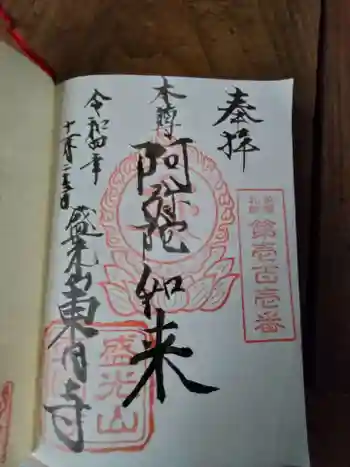 奉拝
第壱百壱番
本尊
阿弥陀如来
令和四年
十一月二十五日
盛光山東円寺
盛光山